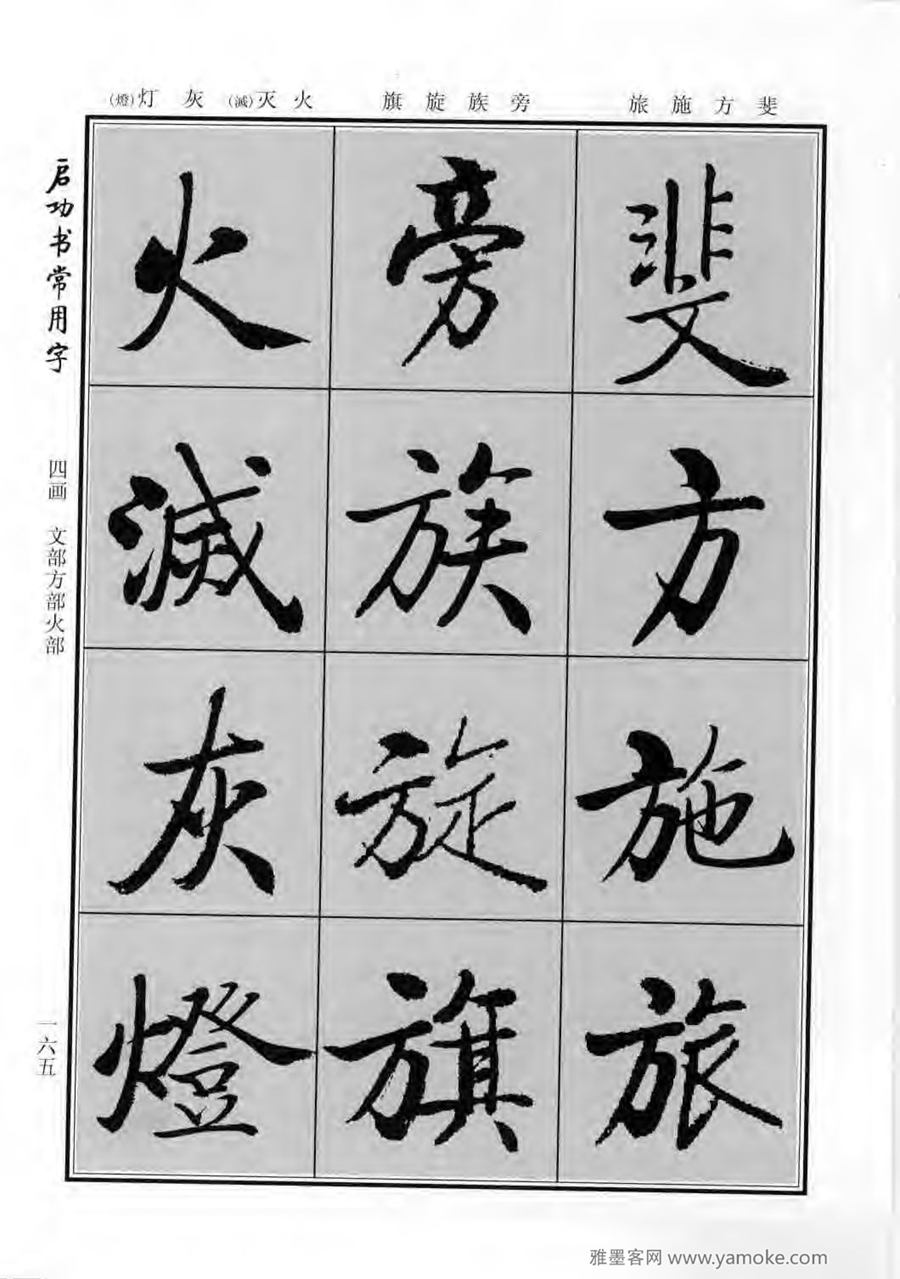 斐方施旅
旁族旋旗
火灭(滅)灰灯(燈)
斐
方
施
旅
旁
族
旋
旗
火
滅
灰
燈
启功书常用字
四画 文部方部火部
一六五
雅墨客网 www.yamoke.com